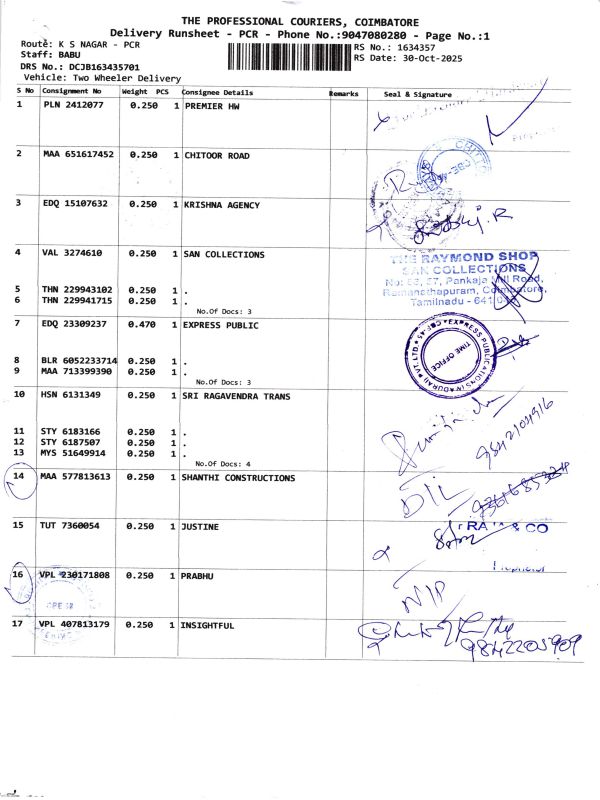 THE PROFESSIONAL COURIERS, COIMBATORE
Delivery Runsheet - PCR - Phone No.:9047080280 - Page No.:1
Route: K S NAGAR - PCR
RS No.: 1634357
Staff: BABU
RS Date: 30-Oct-2025
DRS No.: DCJB163435701
Vehicle: Two Wheeler Delivery
S No Consignment No Weight PCS Consignee Details Remarks Seal & Signature
1 PLN 2412077 0.250 1 PREMIER HW
2 MAA 651617452 0.250 1 CHITOOR ROAD
3 EDQ 15107632 0.250 1 KRISHNA AGENCY
4 VAL 3274610 0.250 1 SAN COLLECTIONS
THE RAYMOND SHOP
SAN COLLECTIONS
Pankaja Mill Road,
Ramanathapuram, Coimbatore,
Tamilnadu - 641
5 THN 229943102 0.250 1 .
6 THN 229941715 0.250 1 .
No.Of Docs: 3
7 EDQ 23309237 0.470 1 EXPRESS PUBLIC
TIME OFFICE
8 BLR 6052233714 0.250 1 .
9 MAA 713399390 0.250 1 .
No.Of Docs: 3
10 HSN 6131349 0.250 1 SRI RAGAVENDRA TRANS
11 STY 6183166 0.250 1 .
12 STY 6187507 0.250 1 .
13 MYS 51649914 0.250 1 .
No.Of Docs: 4
14 MAA 577813613 0.250 1 SHANTHI CONSTRUCTIONS
D/L
15 TUT 7360054 0.250 1 JUSTINE
& CO
16 VPL 230171808 0.250 1 PRABHU
N/P
17 VPL 407813179 0.250 1 INSIGHTFUL
9842205909